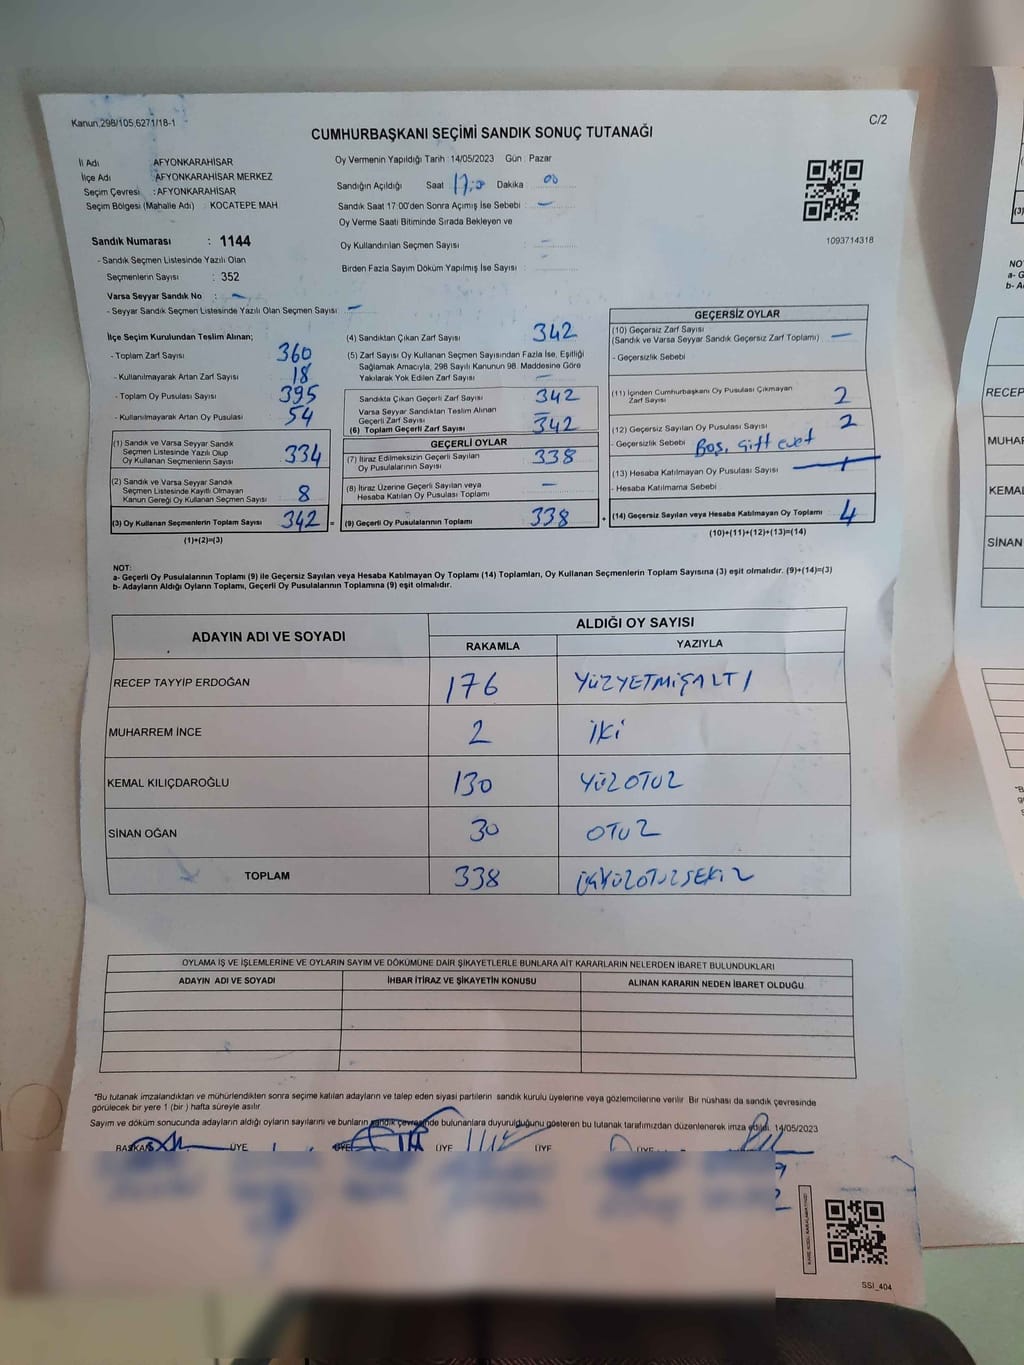 Kanun,298/105,6271/18-1
C/2
CUMHURBAŞKANI SEÇİMİ SANDIK SONUÇ TUTANAĞI
İl Adı AFYONKARAHİSAR
İlçe Adı AFYONKARAHİSAR MERKEZ
Seçim Çevresi : AFYONKARAHİSAR
Seçim Bölgesi (Mahalle Adı) KOCATEPE MAH
Sandık Numarası : 1144
- Sandık Seçmen Listesinde Yazılı Olan
Seçmenlerin Sayısı : 352
Varsa Seyyar Sandık No : -
- Seyyar Sandık Seçmen Listesinde Yazılı Olan Seçmen Sayısı: -
Oy Vermenin Yapıldığı Tarih :14/05/2023 Gün : Pazar
Sandığın Açıldığı Saat 17:00 Dakika 00
Sandık Saat 17:00'den Sonra Açımış İse Sebebi : -
Oy Verme Saati Bitiminde Sırada Bekleyen ve
Oy Kullandırılan Seçmen Sayısı : -
Birden Fazla Sayım Döküm Yapılmış İse Sayısı : -
1093714318
İlçe Seçim Kurulundan Teslim Alınan;
- Toplam Zarf Sayısı 360
- Kullanılmayarak Artan Zarf Sayısı 18
- Toplam Oy Pusulası Sayısı 395
- Kullanılmayarak Artan Oy Pusulası 54
(1) Sandık ve Varsa Seyyar Sandık
Seçmen Listesinde Yazılı Olup
Oy Kullanan Seçmenlerin Sayısı 334
(2) Sandık ve Varsa Seyyar Sandık
Seçmen Listesinde Kayıtlı Olmayan
Kanun Gereği Oy Kullanan Seçmen Sayısı 8
(3) Oy Kullanan Seçmenlerin Toplam Sayısı 342 =
(1)+(2)=(3)
(4) Sandıktan Çıkan Zarf Sayısı 342
(5) Zarf Sayısı Oy Kullanan Seçmen Sayısından Fazla İse, Eşitliği
Sağlamak Amacıyla, 298 Sayılı Kanunun 98. Maddesine Göre
Yakılarak Yok Edilen Zarf Sayısı -
Sandıkta Çıkan Geçerli Zarf Sayısı 342
Varsa Seyyar Sandıktan Teslim Alınan
Geçerli Zarf Sayısı -
(6) Toplam Geçerli Zarf Sayısı 342
GEÇERLİ OYLAR
(7) İtiraz Edilmeksizin Geçerli Sayılan
Oy Pusulalarının Sayısı 338
(8) İtiraz Üzerine Geçerli Sayılan veya
Hesaba Katılan Oy Pusulası Toplamı -
(9) Geçerli Oy Pusulalarının Toplamı 338 +
GEÇERSİZ OYLAR
(10) Geçersiz Zarf Sayısı
(Sandık ve Varsa Seyyar Sandık Geçersiz Zarf Toplamı) -
- Geçersizlik Sebebi
(11) İçinden Cumhurbaşkanı Oy Pusulası Çıkmayan
Zarf Sayısı 2
(12) Geçersiz Sayılan Oy Pusulası Sayısı 2
- Geçersizlik Sebebi Boş, çift evet
(13) Hesaba Katılmayan Oy Pusulası Sayısı
- Hesaba Katılmama Sebebi
(14) Geçersiz Sayılan veya Hesaba Katılmayan Oy Toplamı 4
(10)+(11)+(12)+(13)=(14)
NOT:
a- Geçerli Oy Pusulalarının Toplamı (9) ile Geçersiz Sayılan veya Hesaba Katılmayan Oy Toplamı (14) Toplamları, Oy Kullanan Seçmenlerin Toplam Sayısına (3) eşit olmalıdır. (9)+(14)=(3)
b- Adayların Aldığı Oyların Toplamı, Geçerli Oy Pusulalarının Toplamına (9) eşit olmalıdır.
ADAYIN ADI VE SOYADI
ALDIĞI OY SAYISI
RAKAMLA YAZIYLA
RECEP TAYYİP ERDOĞAN 176 YÜZYETMİŞALTI
MUHARREM İNCE 2 İKİ
KEMAL KILIÇDAROĞLU 130 YÜZOTUZ
SİNAN OĞAN 30 OTUZ
TOPLAM 338 ÜÇYÜZOTUZSEKİZ
OYLAMA İŞ VE İŞLEMLERİNE VE OYLARIN SAYIM VE DÖKÜMÜNE DAİR ŞİKAYETLERLE BUNLARA AİT KARARLARIN NELERDEN İBARET BULUNDUKLARI
ADAYIN ADI VE SOYADI İHBAR İTİRAZ VE ŞİKAYETİN KONUSU ALINAN KARARIN NEDEN İBARET OLDUĞU
"Bu tutanak imzalandıktan ve mühürlendikten sonra seçime katılan adayların ve talep eden siyasi partilerin sandık kurulu üyelerine veya gözlemcilerine verilir. Bir nüshası da sandık çevresinde
görülecek bir yere 1 (bir) hafta süreyle asılır.
Sayım ve döküm sonucunda adayların aldığı oyların sayılarını ve bunların sandık çevresinde bulunanlara duyurulduğunu gösteren bu tutanak tarafımızdan düzenlenerek imza edildi. 14/05/2023
BAŞKAN ÜYE ÜYE ÜYE ÜYE ÜYE
SSI_404
RECEP
MUHAR
KEMAL
SİNAN